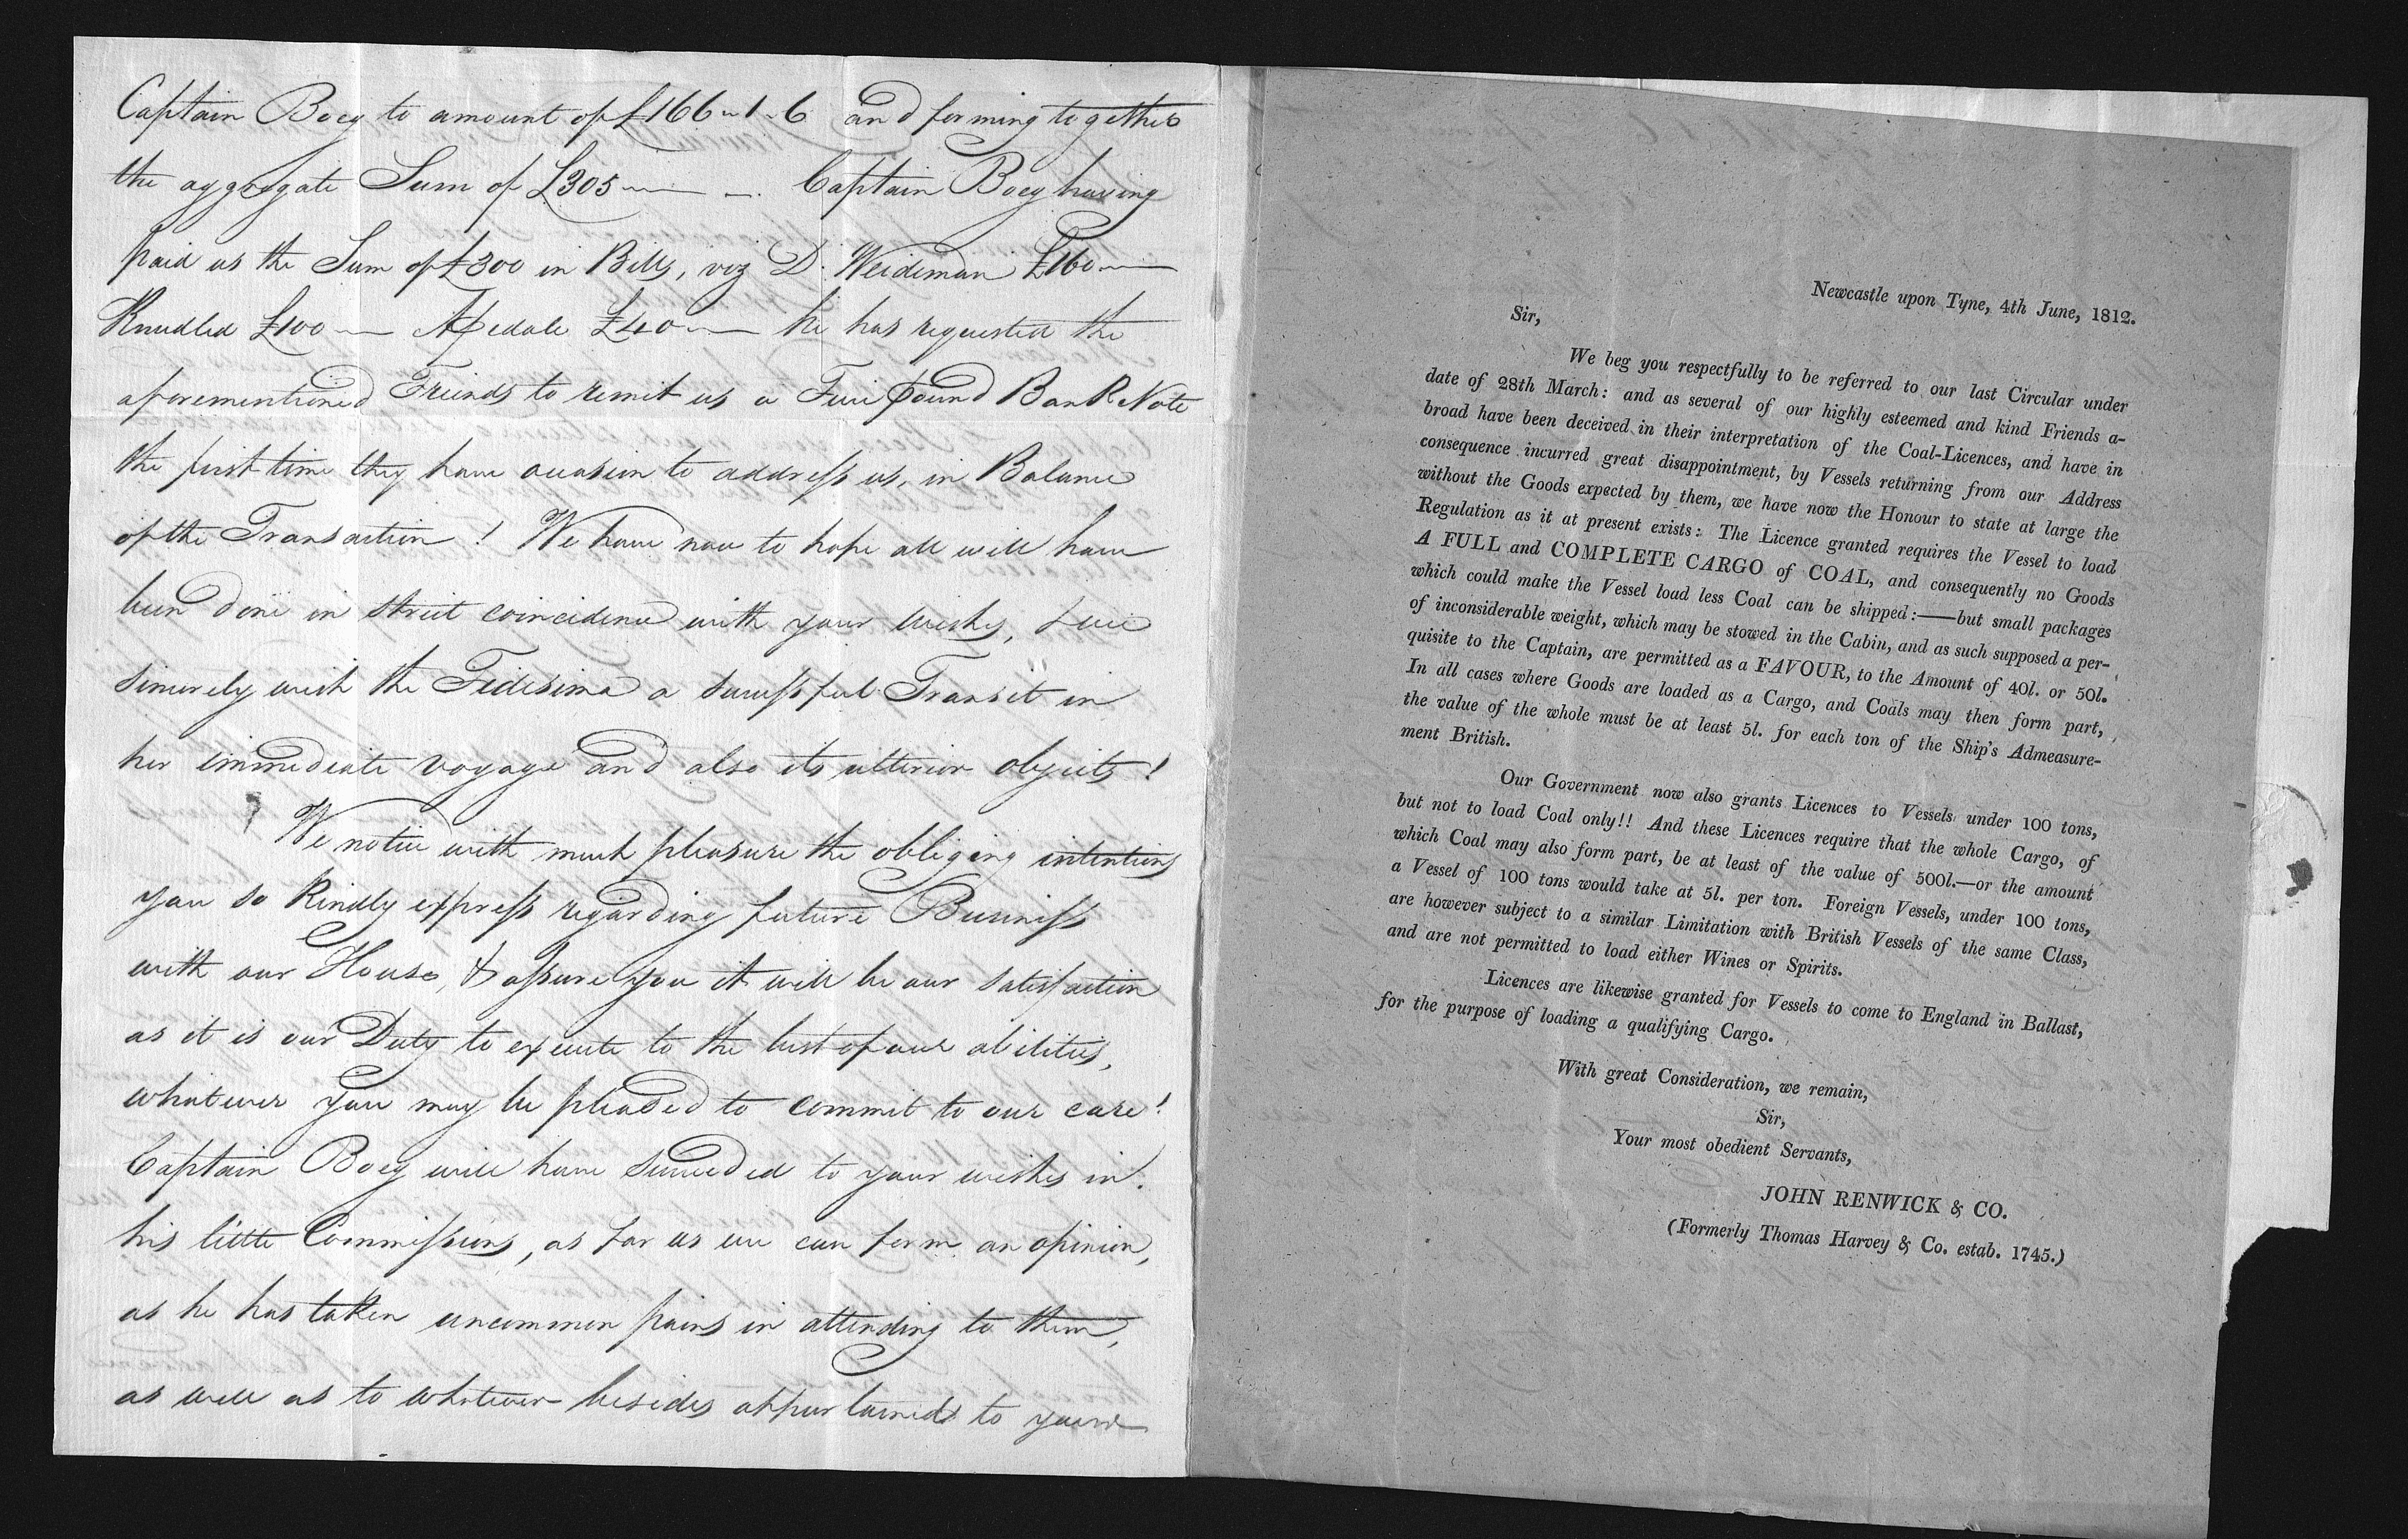 Captain Boey to amount of £166 " 1 " 6 and forming together
the aggregate Sum of £305 Captain Boey having
paid us the Sum of £300 in Bills, viz D. Weideman £160
£100 £40 he has requested the
aforementioned Friends to remit us a Five pound Bank Note
the first time they have occasion to address us, in Balance
of the Transaction ! We have now to hope all will have
been done in strict coincidence with your wishes, & we
sincerely wish the Fidesima a successful Transit in
her immediate voyage and also its ulterior objects !
We notice with much pleasure the obliging intentions
you so kindly express regarding future Business
with our House, & assure you it will be our satisfaction
as it is our Duty to execute to the best of our abilities,
whatever you may be pleased to commit to our care !
Captain Boey will have succeeded to your wishes in
his little Commissions, as far as we can form an opinion,
as he has taken uncommon pains in attending to them,
as well as to whatever besides appertained to your
Newcastle upon Tyne, 4th June, 1812.
Sir,
We beg you respectfully to be referred to our last Circular under
date of 28th March: and as several of our highly esteemed and kind Friends a-
broad have been deceived in their interpretation of the Coal-Licences, and have in
consequence incurred great disappointment, by Vessels returning from our Address
without the Goods expected by them, we have now the Honour to state at large the
Regulation as it at present exists: The Licence granted requires the Vessel to load
A FULL and COMPLETE CARGO of COAL, and consequently no Goods
which could make the Vessel load less Coal can be shipped:——but small packages
of inconsiderable weight, which may be stowed in the Cabin, and as such supposed a per-
quisite to the Captain, are permitted as a FAVOUR, to the Amount of 40l. or 50l.
In all cases where Goods are loaded as a Cargo, and Coals may then form part,
the value of the whole must be at least 5l. for each ton of the Ship's Admeasure-
ment British.
Our Government now also grants Licences to Vessels under 100 tons,
but not to load Coal only!! And these Licences require that the whole Cargo, of
which Coal may also form part, be at least of the value of 500l.—or the amount
a Vessel of 100 tons would take at 5l. per ton. Foreign Vessels, under 100 tons,
are however subject to a similar Limitation with British Vessels of the same Class,
and are not permitted to load either Wines or Spirits.
Licences are likewise granted for Vessels to come to England in Ballast,
for the purpose of loading a qualifying Cargo.
With great Consideration, we remain,
Sir,
Your most obedient Servants,
JOHN RENWICK & CO.
(Formerly Thomas Harvey & Co. estab. 1745.)